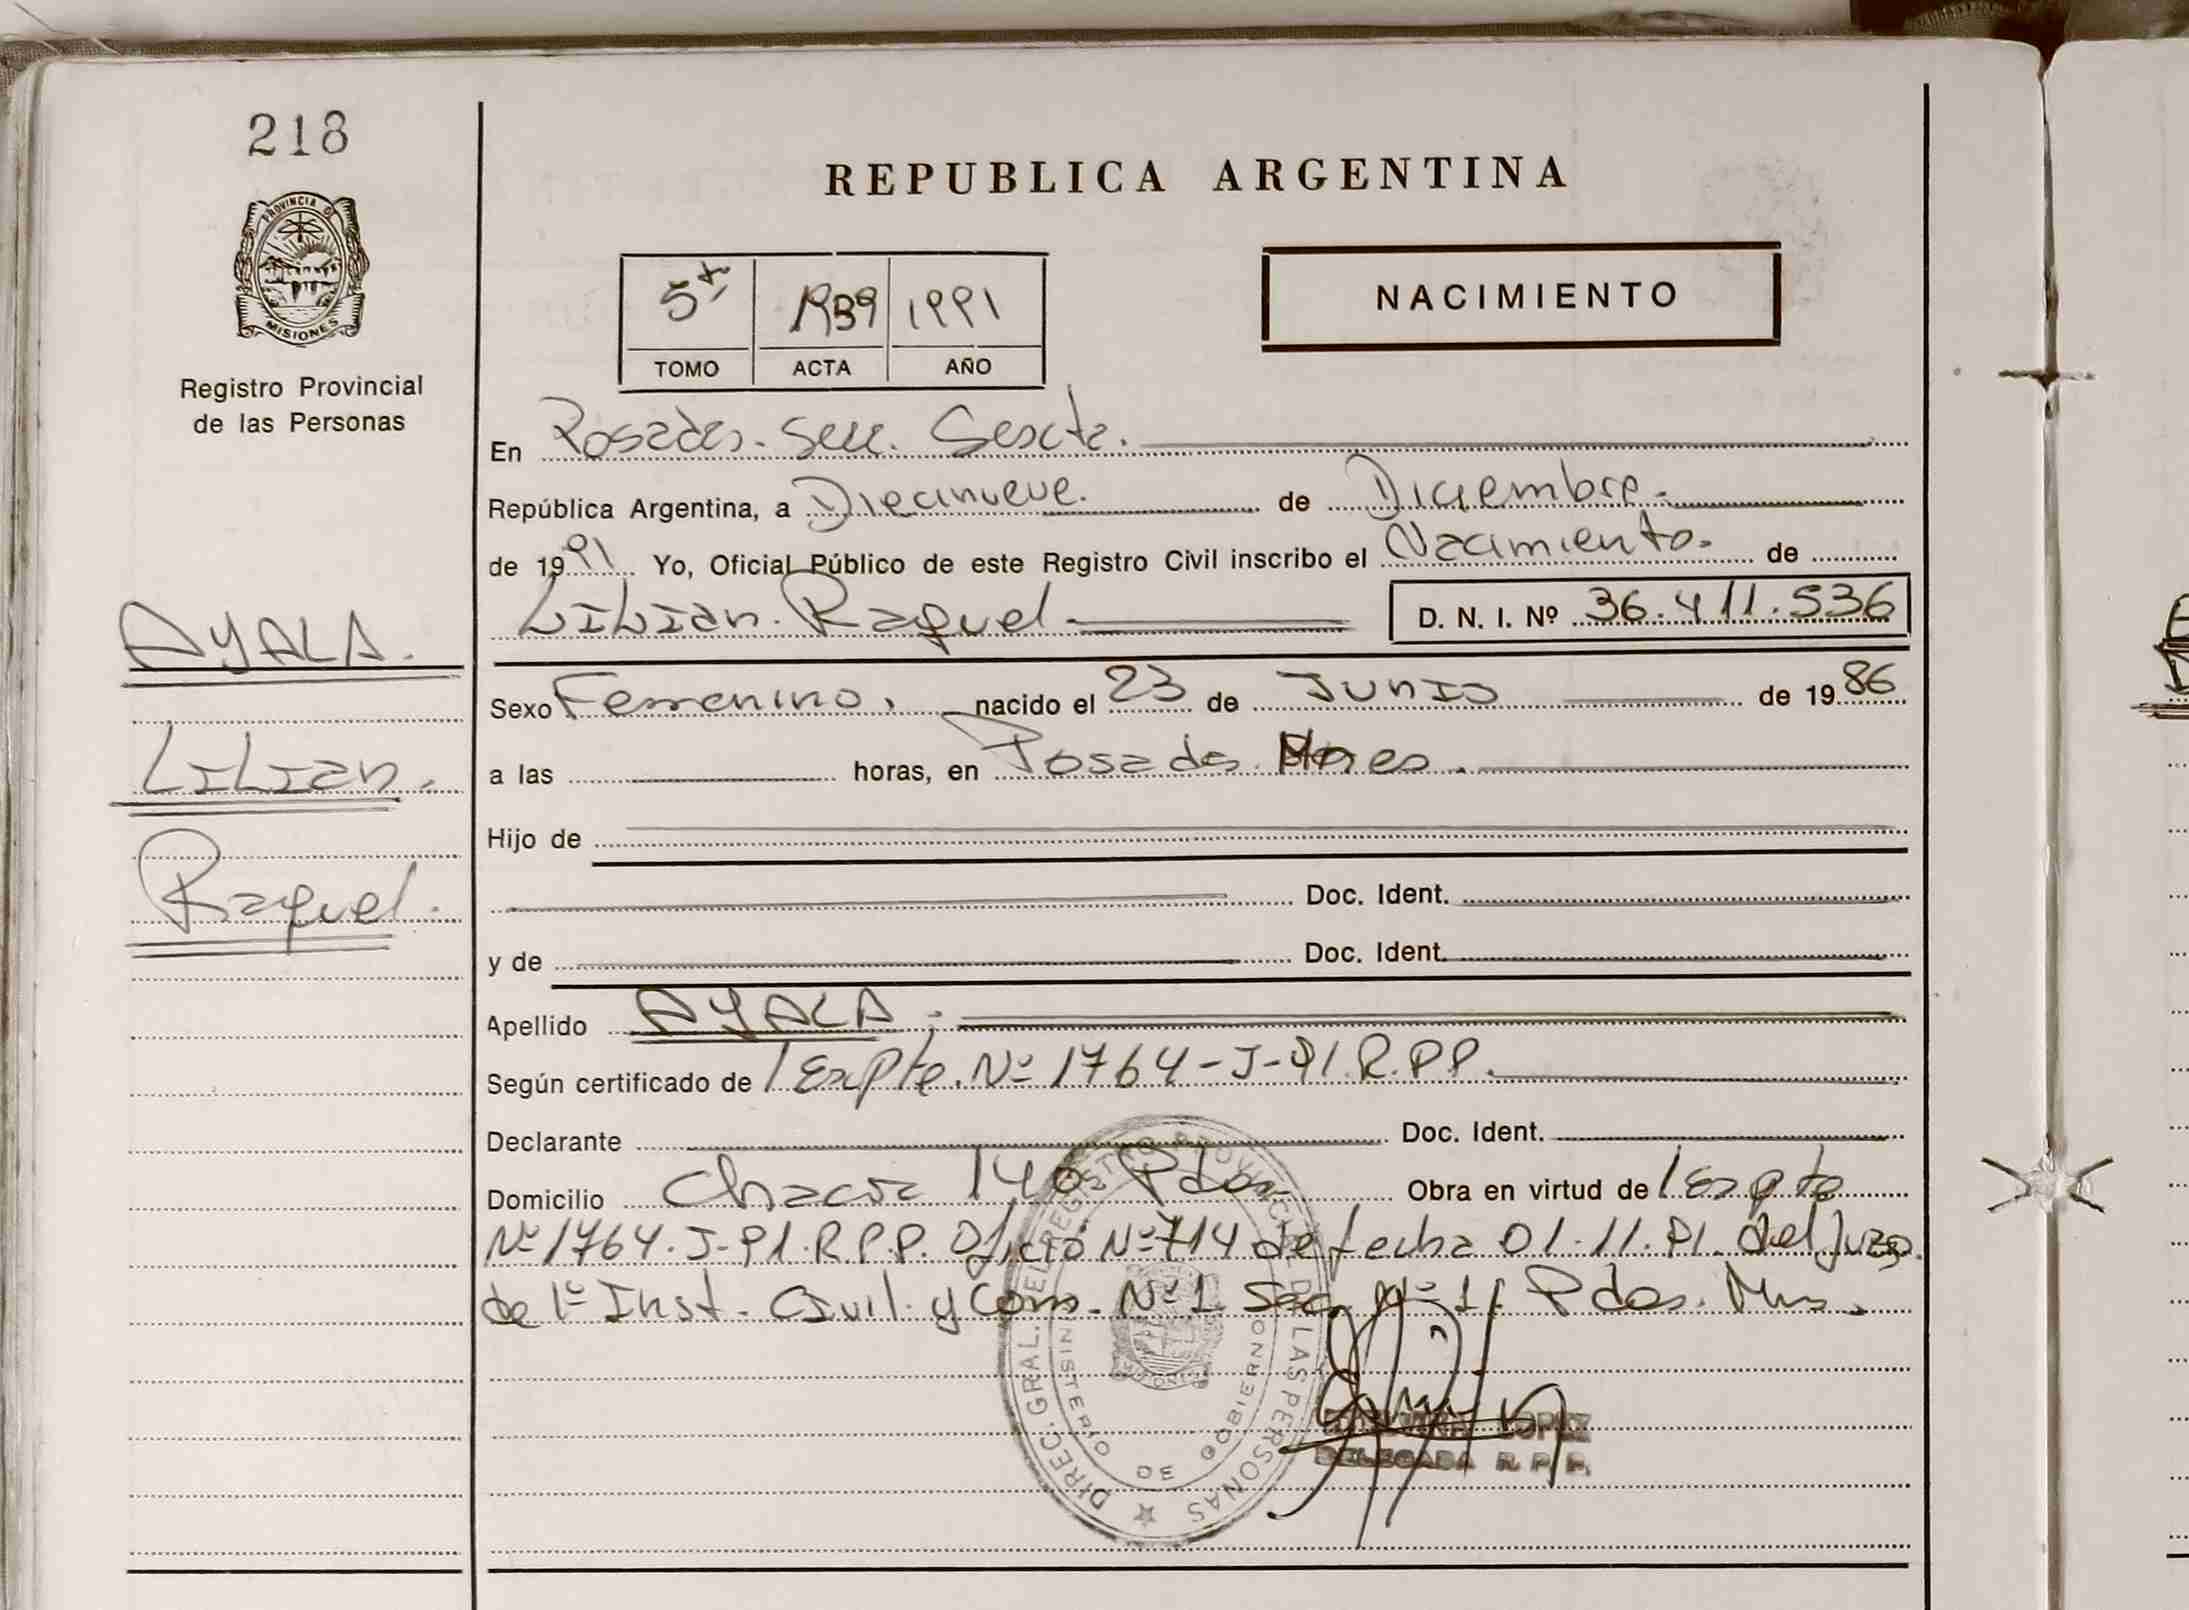 218
REPUBLICA ARGENTINA
PROVINCIA DE
MISIONES
Registro Provincial
de las Personas
NACIMIENTO
5º 1991
TOMO ACTA AÑO
En Posadas. Secc. Sexta.
República Argentina, a Diecinueve. de Diciembre.
de 1991 Yo, Oficial Público de este Registro Civil inscribo el Nacimiento. de
Lilian. Raquel D. N. I. Nº 36.411.536
AYALA.
Lilian.
Raquel.
Sexo Femenino, nacido el 23 de Junio de 1986
a las horas, en Posadas Mnes.
Hijo de
Doc. Ident.
y de Doc. Ident.
Apellido AYALA
Según certificado de Expte. Nº 1764-J-91.R.P.P.
Declarante Doc. Ident.
Domicilio Chacra 140 Pdas. Obra en virtud de Expte
Nº 1764.J-91.R.P.P. Oficio Nº 714 de fecha 01.11.91. del Juzg.
de 1º Inst. Civil y Com. Nº 1 Sec. Nº 1 Pdas. Mns.
DIREC. GRAL. DEL REGISTRO PROVINCIAL DE LAS PERSONAS
MINISTERIO DE GOBIERNO
LOPEZ
DELEGADA R. P. P.